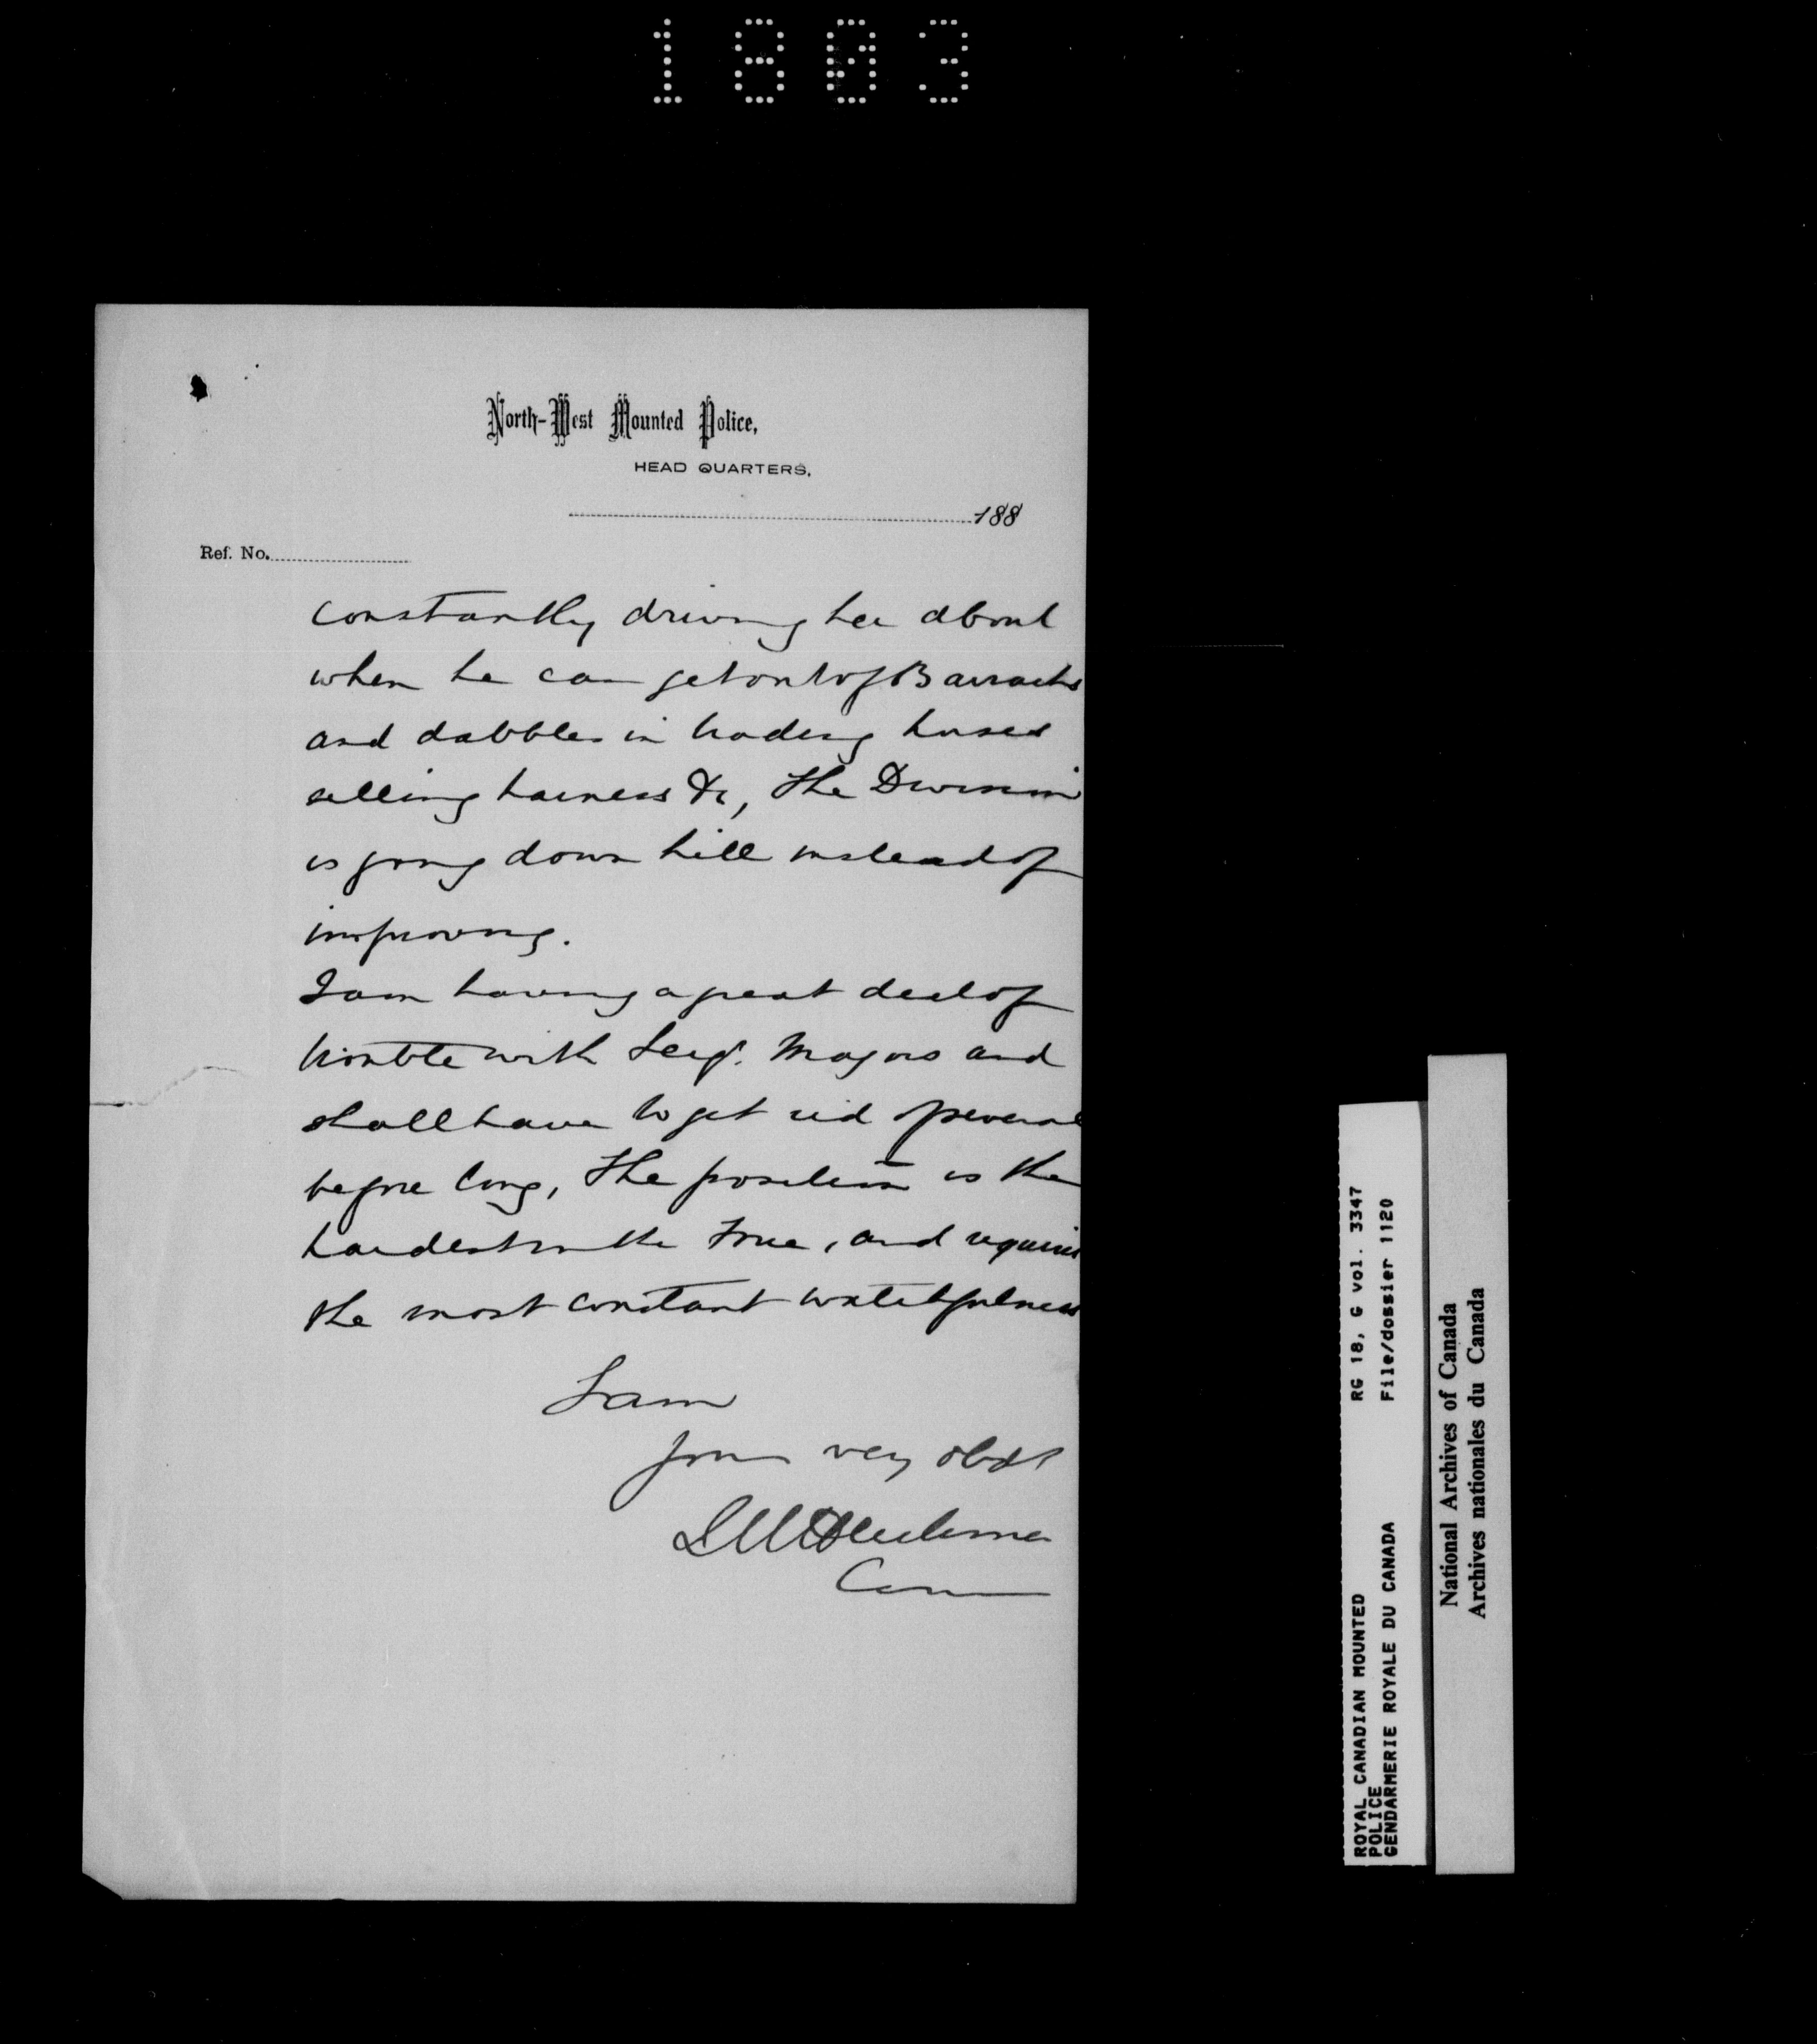 1803
North-West Mounted Police,
HEAD QUARTERS.
188
Ref. No.
constantly driving her about
when he can get out of Barracks
and dabbles in trading horses
selling harness &c, The Division
is going down hill instead of
improving.
I am having a great deal of
trouble with Sergt. Majors and
shall have to get rid of several
before long, The position is the
hardest in the Force, and requires
the most constant watchfulness
I am
Your very obdt
LWHerchmer
Com
ROYAL CANADIAN MOUNTED
POLICE
GENDARMERIE ROYALE DU CANADA
RG 18, G vol. 3347
File/dossier 1120
National Archives of Canada
Archives nationales du Canada